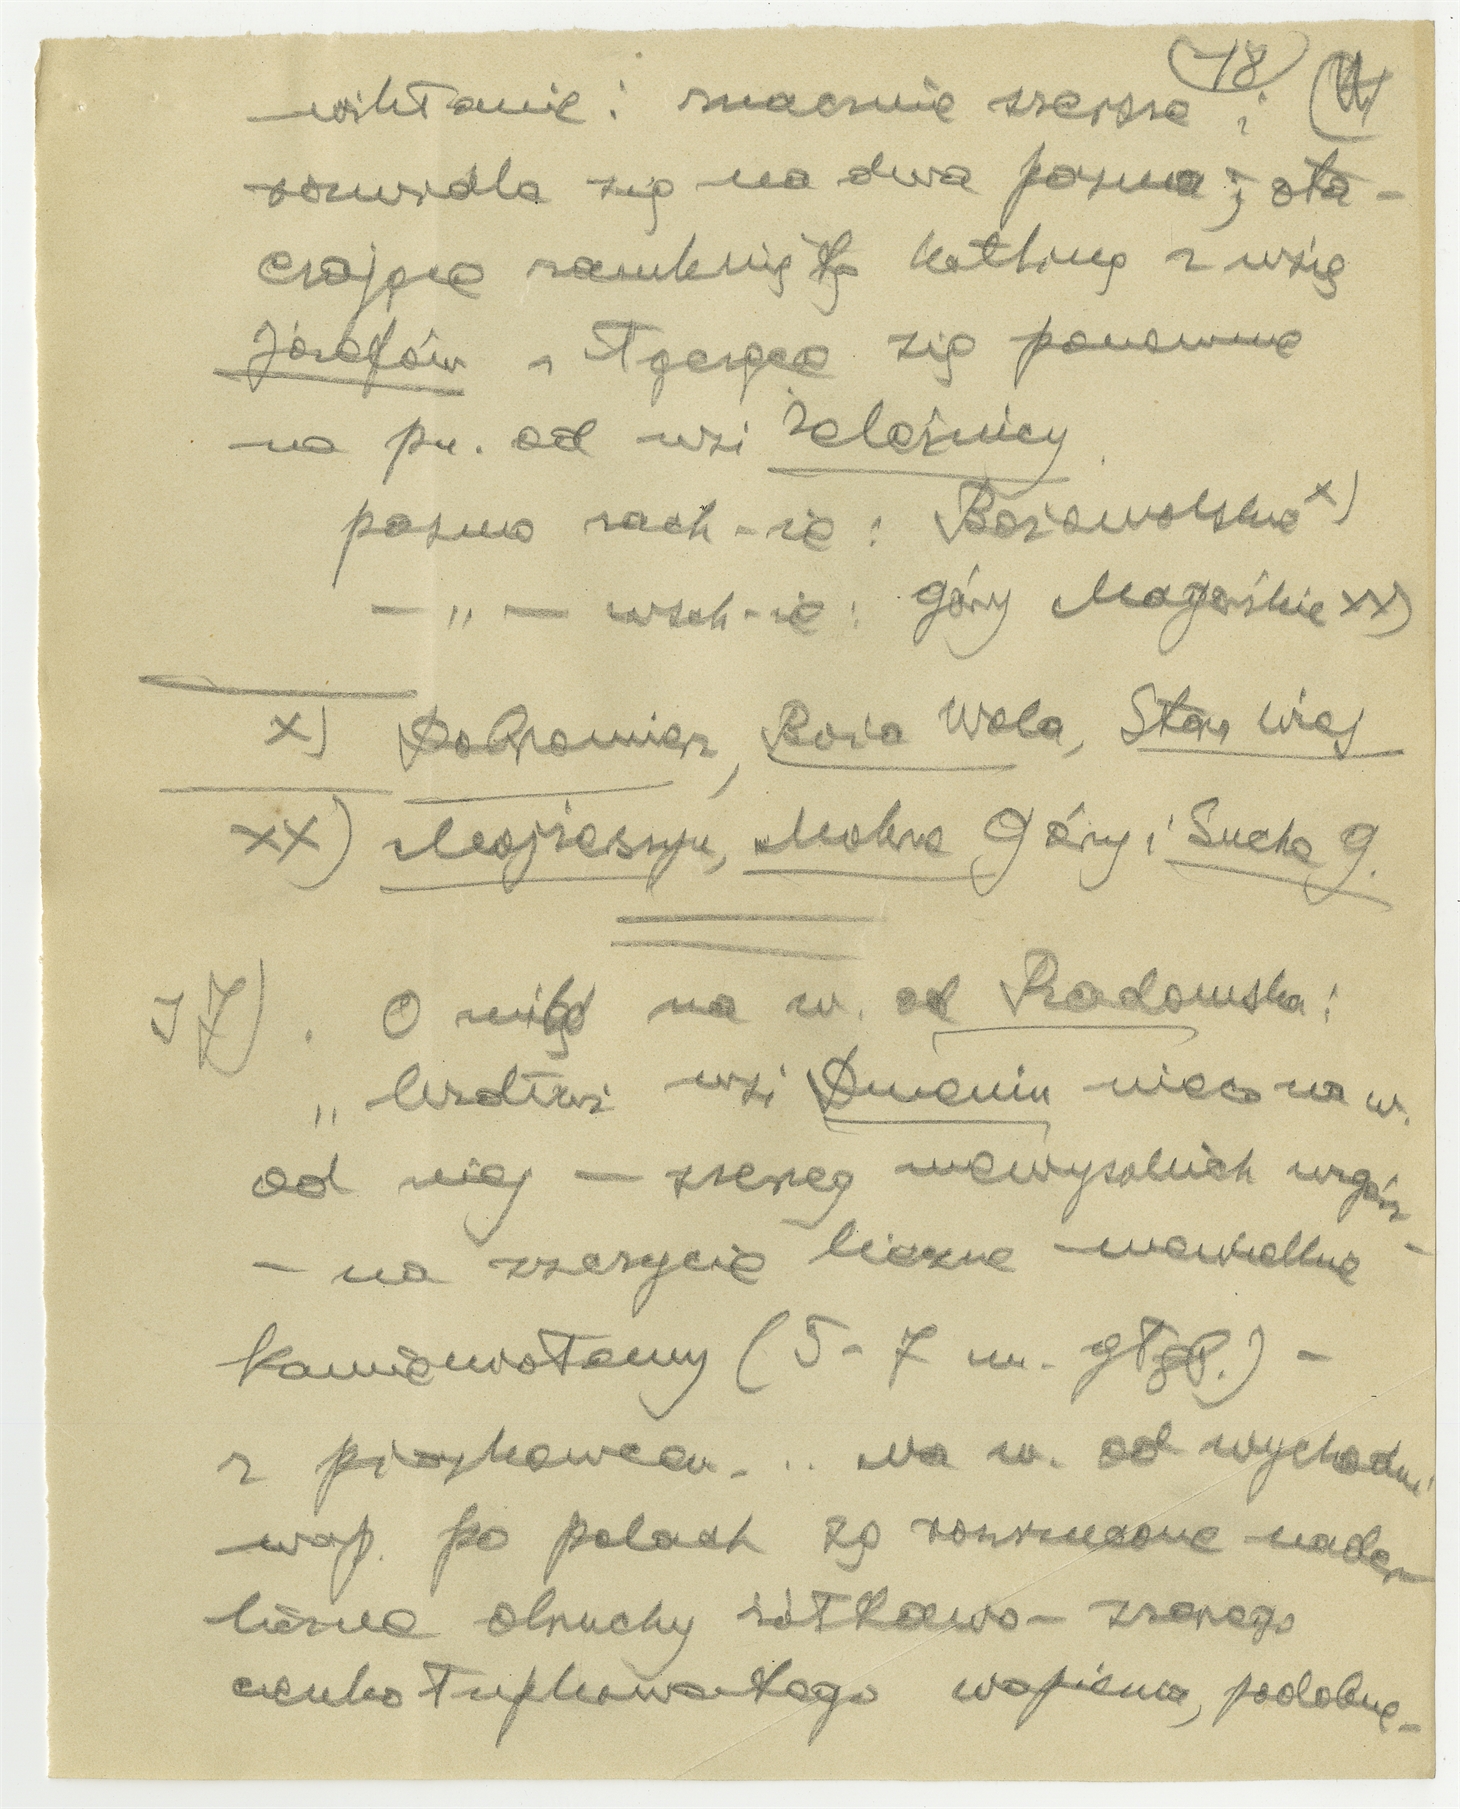 18
wikłanie i znacznie szersze i
rozwidla się na dwa pasma, ota-
czające zamkniętą kotlinę z wsią
Józefów, łączące się ponownie
na pn. od wsi Żeleźnicy.
pasmo zach-ie: Bożowolskie x)
— „ — wsch-ie: góry Majowskie xx)
x) Dobromierz, Boża Wola, Stara Wieś
xx) Mojżeszyn, Mokre Góry i Sucha g.
37). O milę na w. od Radomska:
„ wsi Dmenin nieco na w.
od niej — szereg niewysokich wzgórz
- na szczycie liczne niewielkie
kamieniołomy (5-7 m. głęb.) -
z piaskowcem... Na w. od wychodni
wap. po polach są rozrzucone nader
liczne okruchy żółtkawo-szarego
cienkołupkowatego wapienia, podobne-